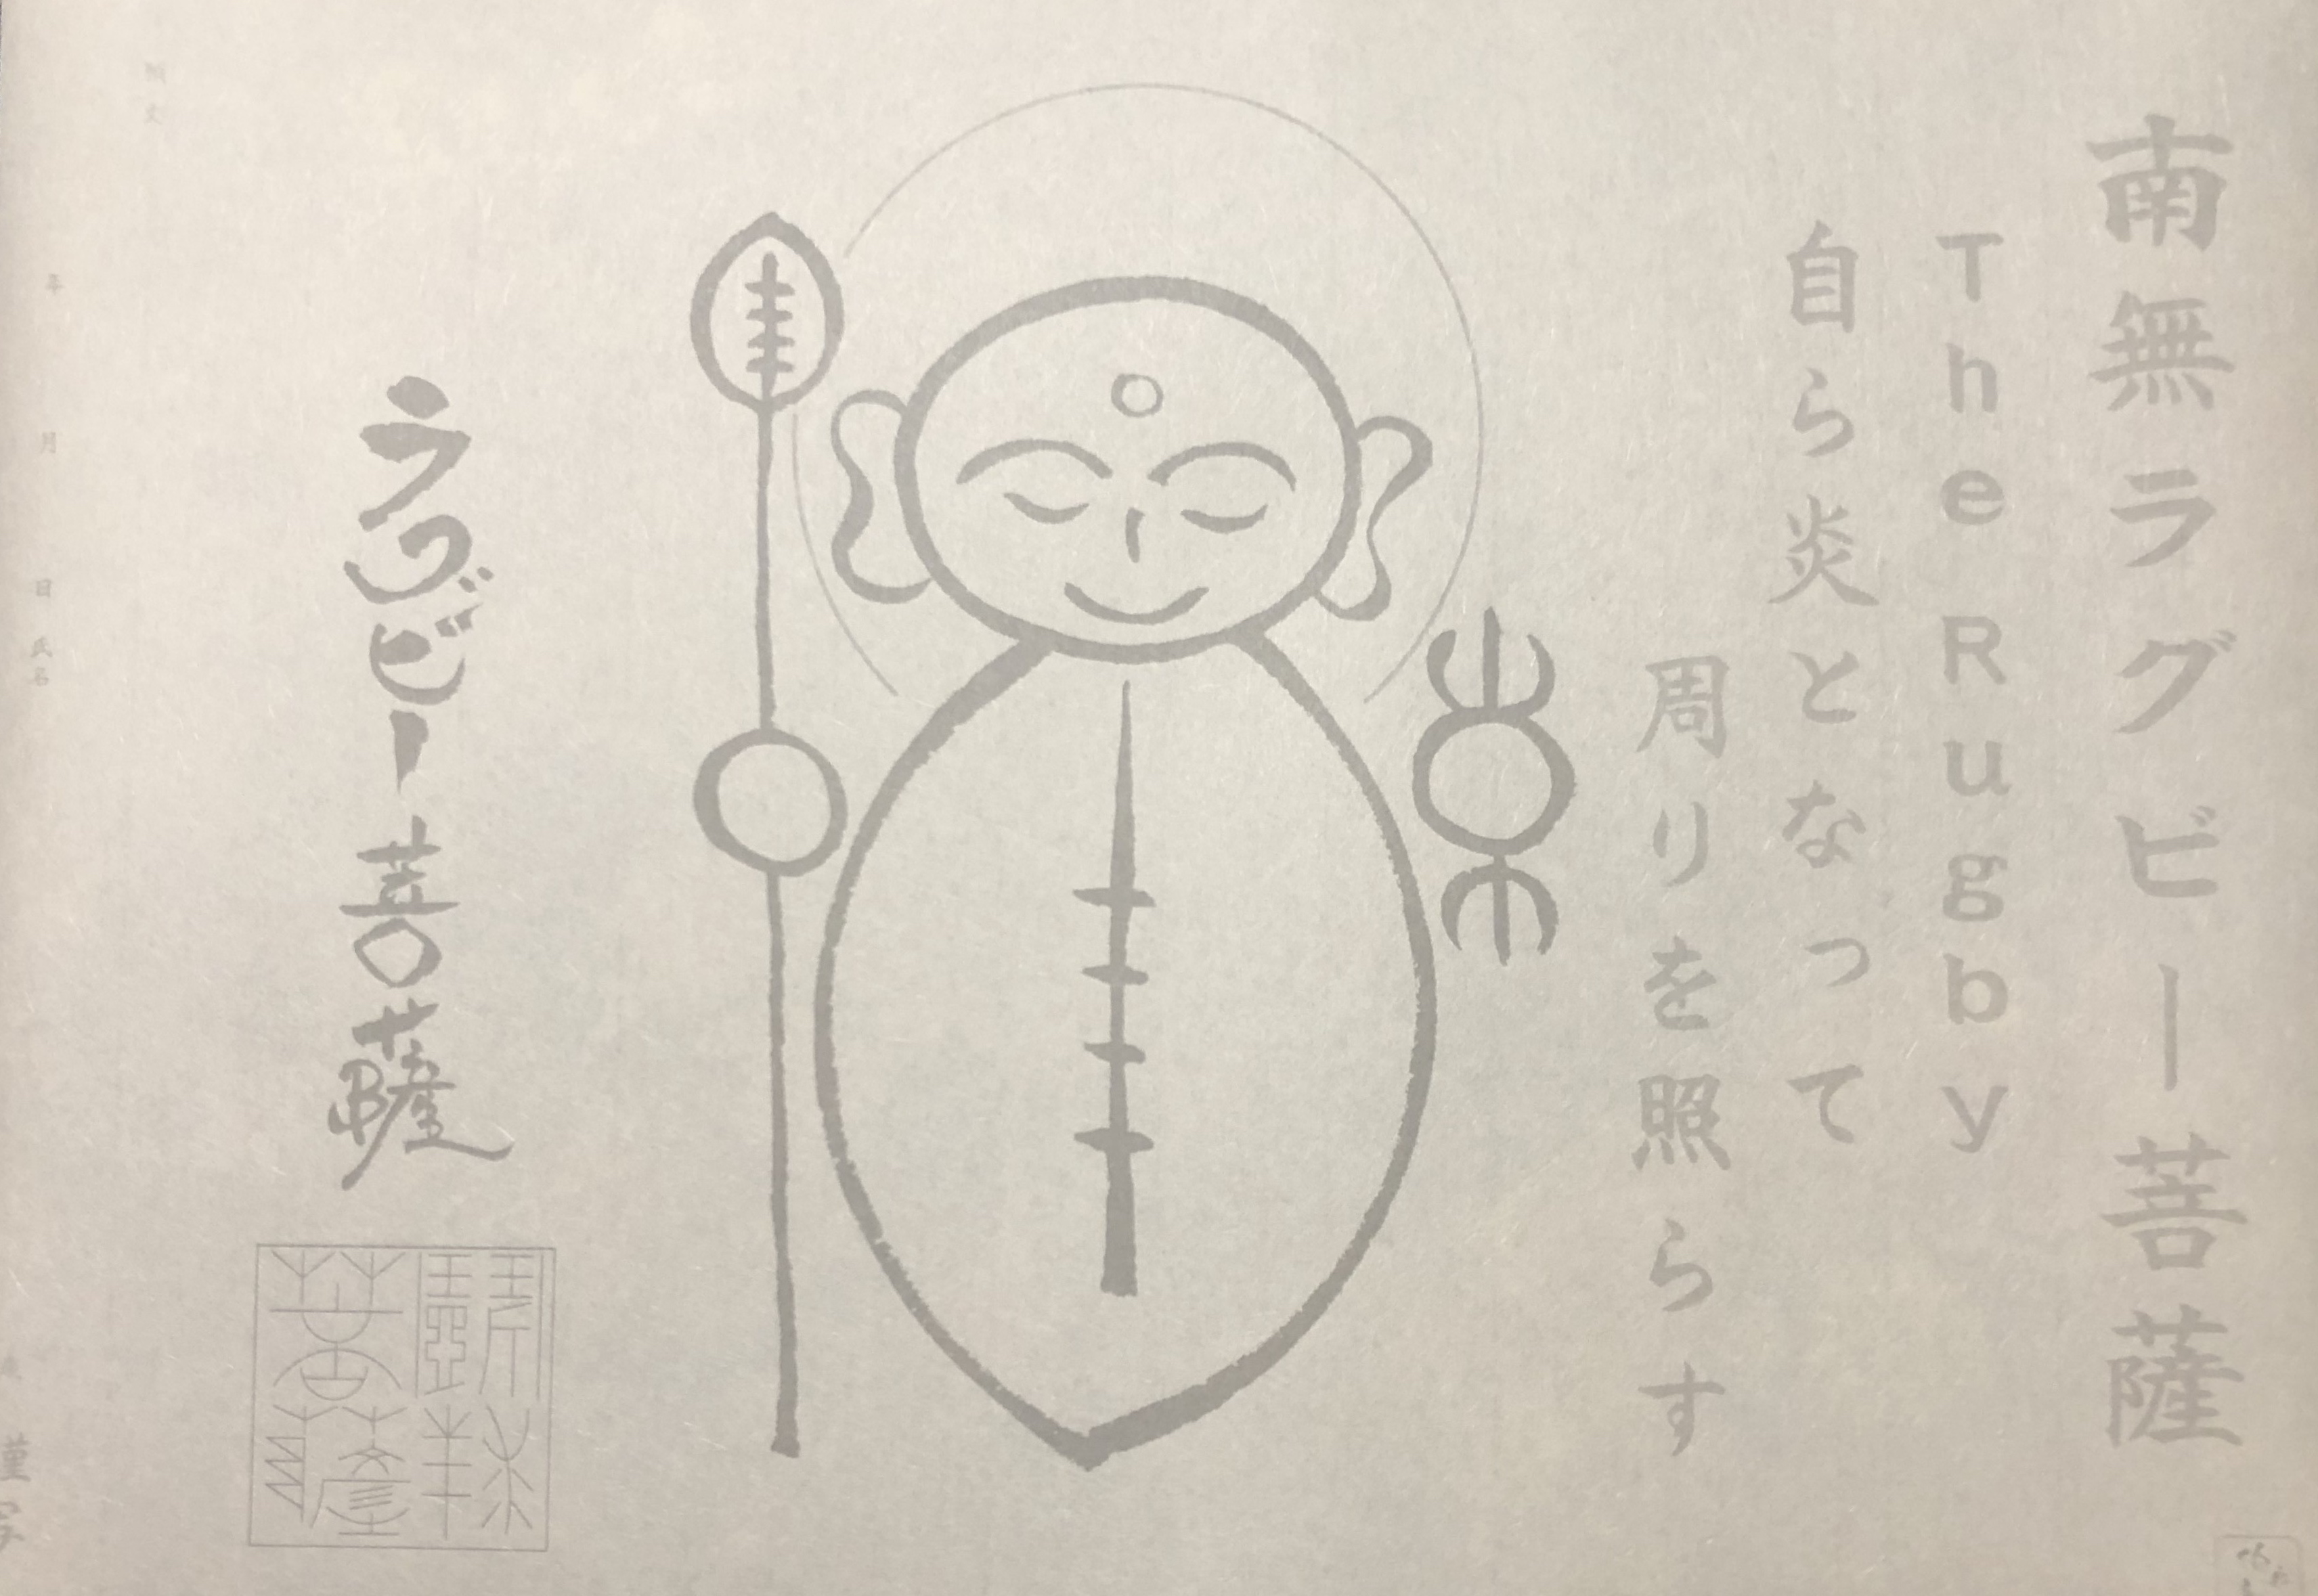 南無ラグビー菩薩
The Rugby
自ら炎となって
周りを照らす
ラグビー菩薩
闘球菩薩
願文
年 月 日 氏名
謹写